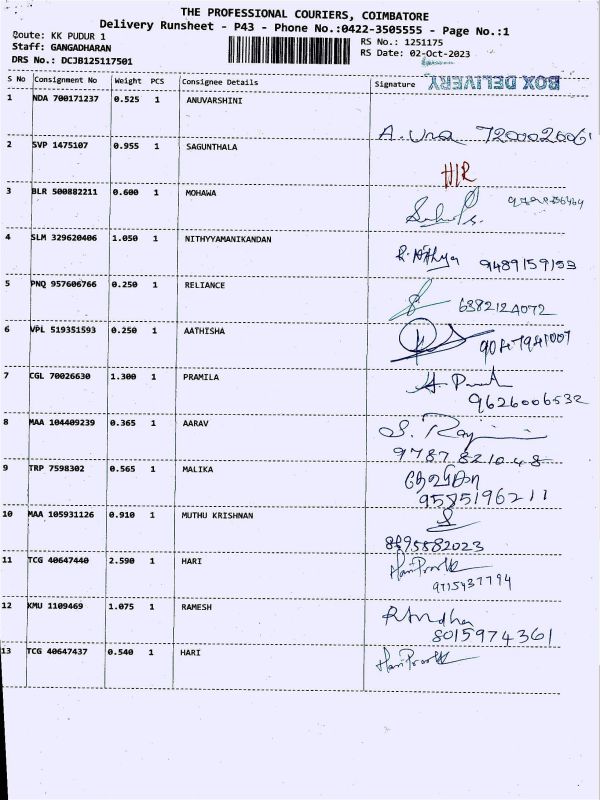 THE PROFESSIONAL COURIERS, COIMBATORE
Delivery Runsheet - P43 - Phone No.:0422-3505555 - Page No.:1
Route: KK PUDUR 1
Staff: GANGADHARAN
DRS No.: DCJB125117501
RS No.: 1251175
RS Date: 02-Oct-2023
BOX DELIVERY
S No Consignment No Weight PCS Consignee Details Signature
1 NDA 700171237 0.525 1 ANUVARSHINI
A. Uma 7200020061
2 SVP 1475107 0.955 1 SAGUNTHALA
H/R
3 BLR 500882211 0.600 1 MOHAWA
4 SLM 329620406 1.050 1 NITHYYAMANIKANDAN
R. Nithya 9489159153
5 PNQ 957606766 0.250 1 RELIANCE
6382124072
6 VPL 519351593 0.250 1 AATHISHA
7 CGL 70026630 1.300 1 PRAMILA
9626006532
8 MAA 104409239 0.365 1 AARAV
9787821048
9 TRP 7598302 0.565 1 MALIKA
9585196211
10 MAA 105931126 0.910 1 MUTHU KRISHNAN
8695582023
11 TCG 40647440 2.590 1 HARI
9715437794
12 KMU 1109469 1.075 1 RAMESH
8015974361
13 TCG 40647437 0.540 1 HARI